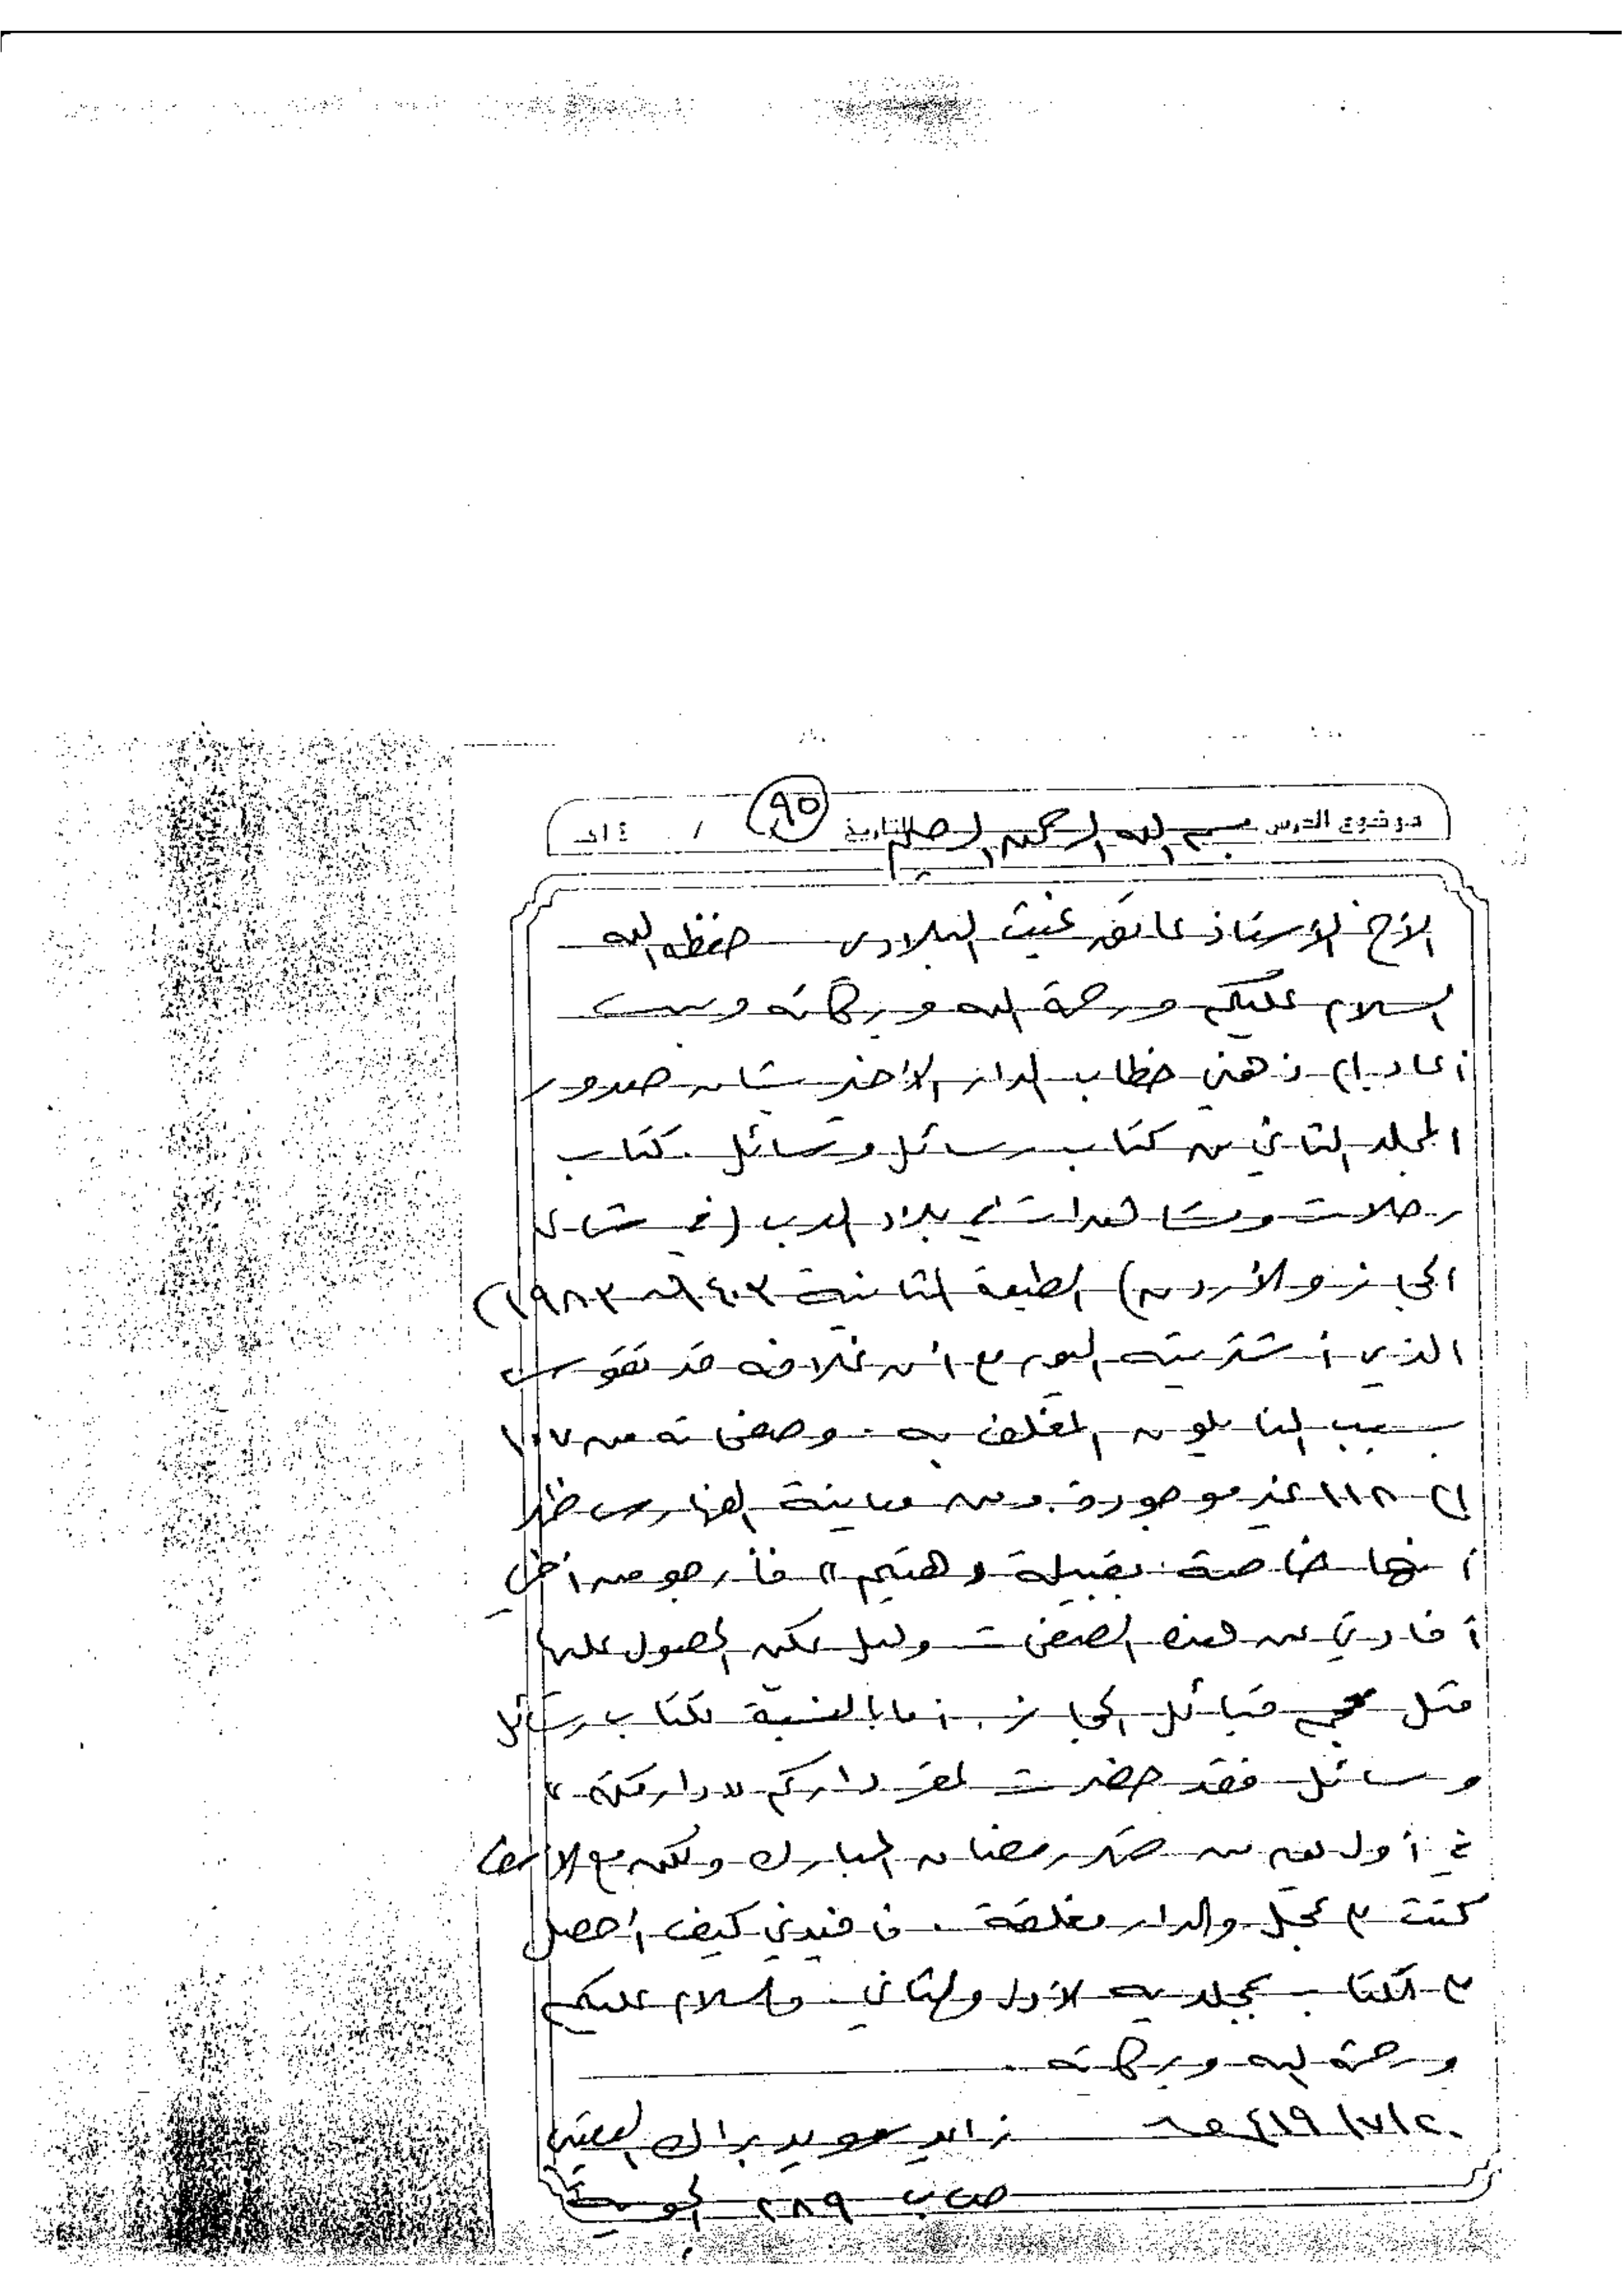 موضوع الدرس بسم الله الرحمن الرحيم التاريخ ٩٥ / ١٤هـ
الأخ الاستاذ عاتق غيث البلادي حفظه الله
السلام عليكم ورحمة الله وبركاته وبعد
أعاد إلى ذهني خطاب الدار الأخير بشأن صدور
المجلد الثاني من كتاب رسائل ومسائل. كتاب
رحلات ومشاهدات في بلاد العرب (في شمال
الحجاز والأردن) الطبعة الثانية ١٤٠٣هـ ١٩٨٣م)
الذي أشتريته اليوم مع أن غلافه قد تقوس
بسبب النايلون المغلف به. وصفحاته من ١٠٧
إلى ١١٨ غير موجودة. ومن معاينة الفهارس ظهر
أنها خاصة بقبيلة «هتيم» فأرجو من أخي
أفادتي عن هذه الصفحات وهل يمكن الحصول عليها
مثل معجم قبائل الحجاز. أما بالنسبة لكتاب رسائل
ومسائل فقد حضرت لمقر داركم «دار مكة»
في أول يوم من شهر رمضان المبارك ولكن مع الأسف
كنت م عجل والدار مغلقة. فأفيدني كيف أحصل
م الكتاب بمجلديه الأول والثاني. والسلام عليكم
ورحمة الله وبركاته
٢٠/٧/٤١٩هـ زايد سويد براك
ص ب ٢٨٩